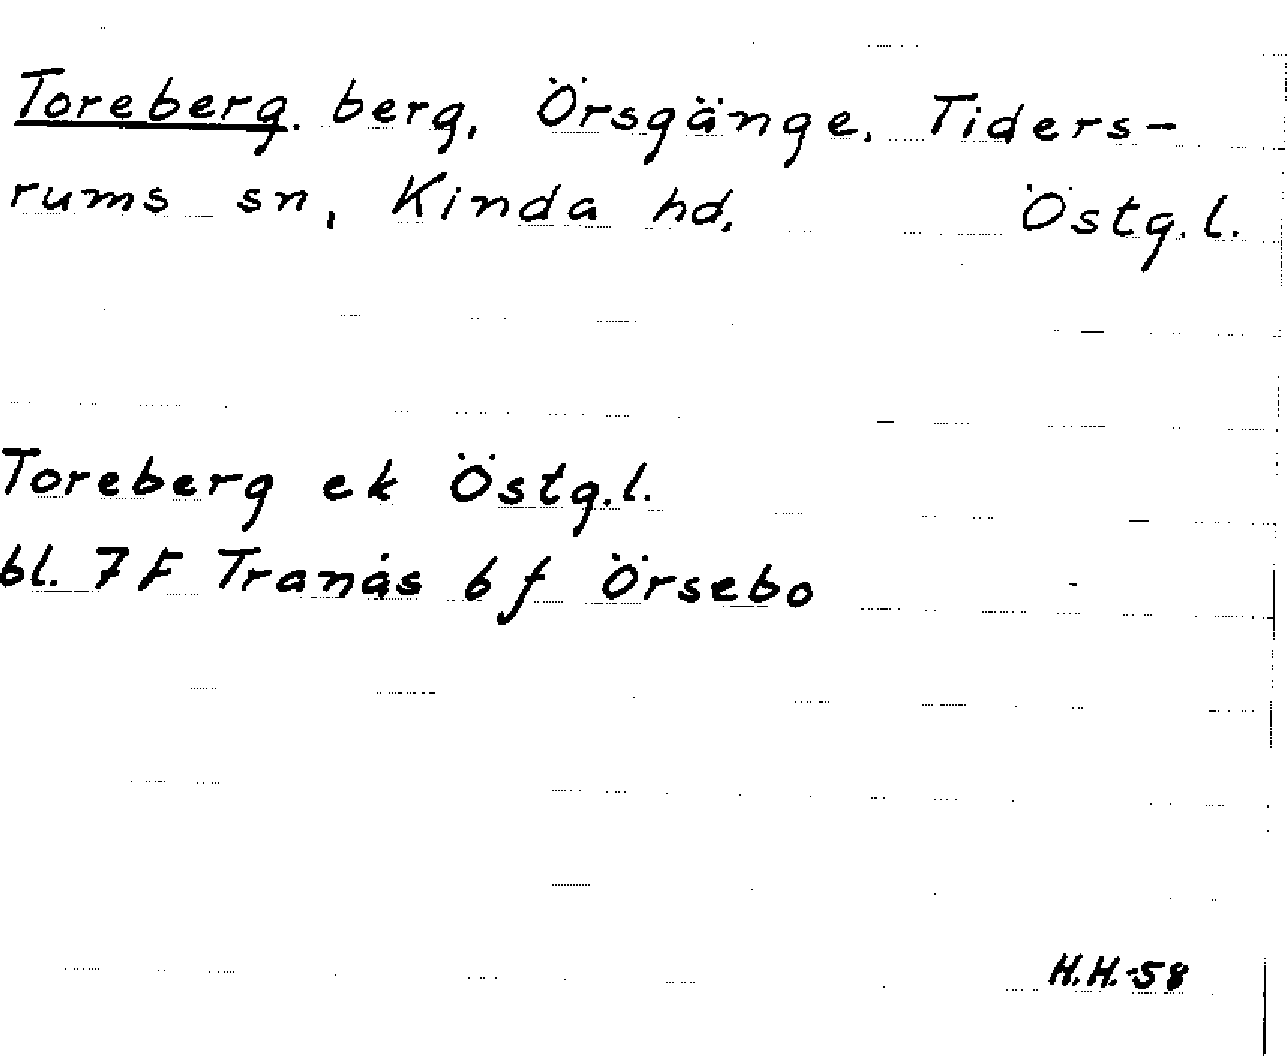 Toreberg. berg, Örsgänge. Tiders-
rums sn, Kinda hd. Östg.l.
Toreberg ek Östg.l.
bl. 7F Tranås 6f Örsebo
H.H.-58